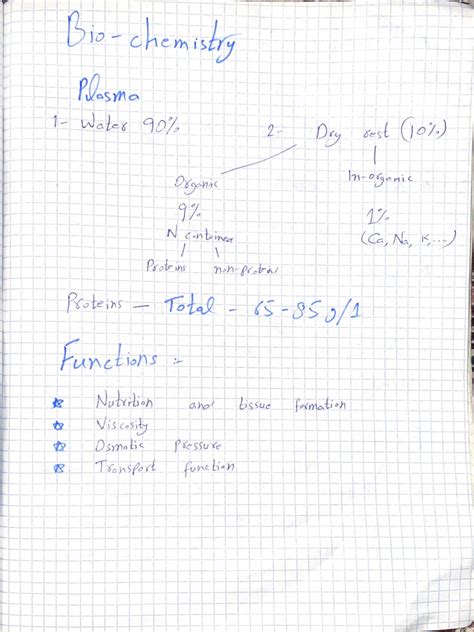 Bio-chemistry
Plasma
1- Water 90%
2- Dry rest (10%)
Organic
9%
N container
Proteins non-protein
In-organic
1%
(Ca, Na, K,...)
Proteins — Total - 65-85 g/l
Functions :-
Nutrition and tissue formation
Viscosity
Osmotic pressure
Transport function